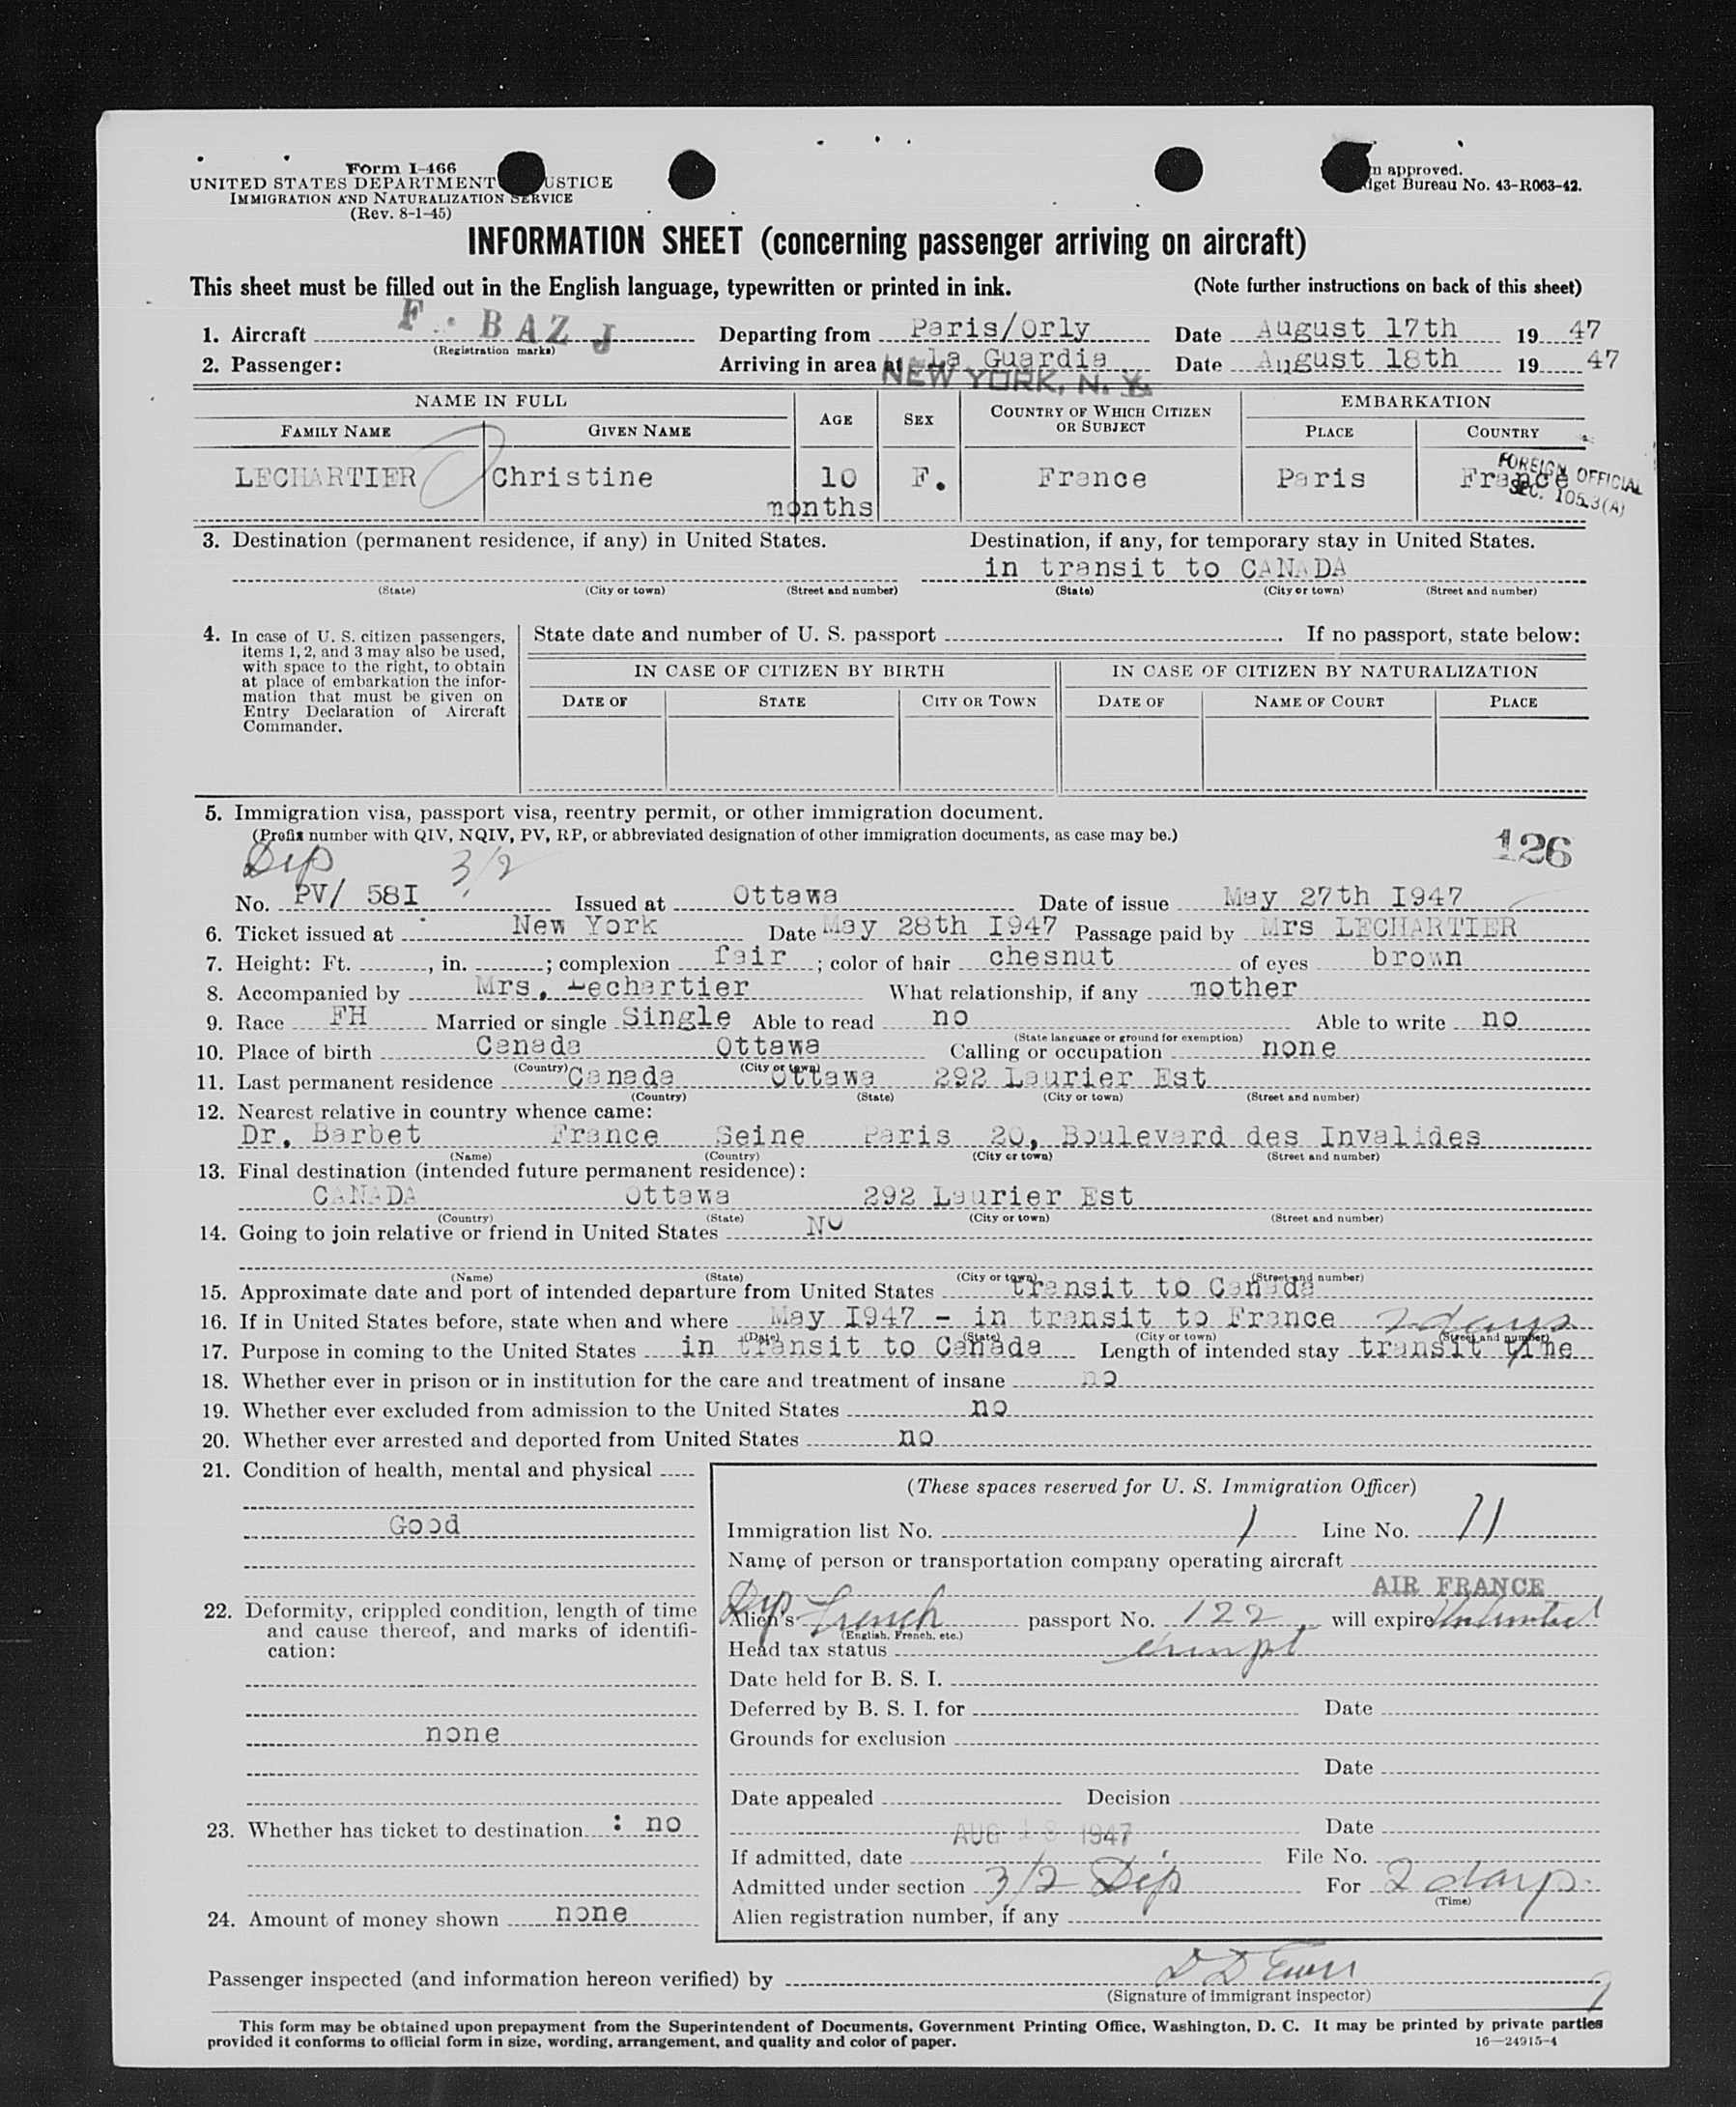 Form I-466
UNITED STATES DEPARTMENT USTICE
IMMIGRATION AND NATURALIZATION SERVICE
(Rev. 8-1-45)
n approved.
get Bureau No. 43-R063-42.
INFORMATION SHEET (concerning passenger arriving on aircraft)
This sheet must be filled out in the English language, typewritten or printed in ink. (Note further instructions on back of this sheet)
1. Aircraft F. BAZJ Departing from Paris/Orly Date August 17th 1947
(Registration marks)
2. Passenger: Arriving in area at La Guardia Date August 18th 1947
NEW YORK, N. Y.
NAME IN FULL AGE SEX COUNTRY OF WHICH CITIZEN OR SUBJECT EMBARKATION
FAMILY NAME GIVEN NAME PLACE COUNTRY
LECHARTIER Christine 10 months F. France Paris France
FOREIGN OFFICIAL
SEC. 105.3(A)
3. Destination (permanent residence, if any) in United States. Destination, if any, for temporary stay in United States.
in transit to CANADA
(State) (City or town) (Street and number) (State) (City or town) (Street and number)
4. In case of U. S. citizen passengers,
items 1, 2, and 3 may also be used,
with space to the right, to obtain
at place of embarkation the infor-
mation that must be given on
Entry Declaration of Aircraft
Commander.
State date and number of U. S. passport . If no passport, state below:
IN CASE OF CITIZEN BY BIRTH IN CASE OF CITIZEN BY NATURALIZATION
DATE OF STATE CITY OR TOWN DATE OF NAME OF COURT PLACE
5. Immigration visa, passport visa, reentry permit, or other immigration document.
(Prefix number with QIV, NQIV, PV, RP, or abbreviated designation of other immigration documents, as case may be.)
126
Dip 3/2
No. PV/ 58I Issued at Ottawa Date of issue May 27th I947
6. Ticket issued at New York Date May 28th I947 Passage paid by Mrs LECHARTIER
7. Height: Ft. , in. ; complexion fair ; color of hair chesnut of eyes brown
8. Accompanied by Mrs. Lechartier What relationship, if any mother
9. Race FH Married or single Single Able to read no Able to write no
(State language or ground for exemption)
10. Place of birth Canada Ottawa Calling or occupation none
(Country) (City or town)
11. Last permanent residence Canada Ottawa 292 Laurier Est
(Country) (State) (City or town) (Street and number)
12. Nearest relative in country whence came:
Dr. Barbet France Seine Paris 20, Boulevard des Invalides
(Name) (Country) (City or town) (Street and number)
13. Final destination (intended future permanent residence):
CANADA Ottawa 292 Laurier Est
(Country) (State) (City or town) (Street and number)
14. Going to join relative or friend in United States No
(Name) (State) (City or town) (Street and number)
15. Approximate date and port of intended departure from United States transit to Canada
16. If in United States before, state when and where May I947 - in transit to France 2 days
(Date) (State) (City or town) (Street and number)
17. Purpose in coming to the United States in transit to Canada Length of intended stay transit time
18. Whether ever in prison or in institution for the care and treatment of insane no
19. Whether ever excluded from admission to the United States no
20. Whether ever arrested and deported from United States no
21. Condition of health, mental and physical
Good
22. Deformity, crippled condition, length of time
and cause thereof, and marks of identifi-
cation:
none
23. Whether has ticket to destination : no
24. Amount of money shown none
(These spaces reserved for U. S. Immigration Officer)
Immigration list No. 1 Line No. 11
Name of person or transportation company operating aircraft
AIR FRANCE
Dip
Alien's French passport No. 122 will expire Unlimited
(English, French, etc.)
Head tax status exempt
Date held for B. S. I.
Deferred by B. S. I. for Date
Grounds for exclusion
Date
Date appealed Decision
Date
AUG 18 1947
If admitted, date File No.
Admitted under section 3/2 Dip For 2 days
(Time)
Alien registration number, if any
Passenger inspected (and information hereon verified) by
(Signature of immigrant inspector)
This form may be obtained upon prepayment from the Superintendent of Documents, Government Printing Office, Washington, D. C. It may be printed by private parties
provided it conforms to official form in size, wording, arrangement, and quality and color of paper. 16—24915-4